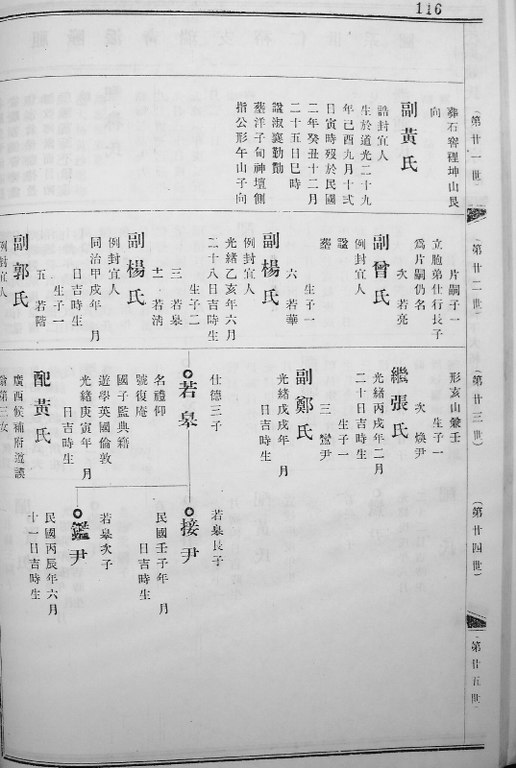 116
(第廿一世)
葬石窖程坤山艮
向
副黃氏
誥封宜人
生於道光二十九
年己酉九月十弍
日寅時歿於民國
二年癸丑十二月
二十五日巳時
諡淑襄勤勤
墓洋子甸神壇側
指公形午山子向
(第廿二世)
片嗣子一
立胞弟仕行長子
為片嗣仍名
次 若亮
副曾氏
例封宜人
諡
墓
生子一
六 若華
副楊氏
例封宜人
光緒乙亥年六月
二十八日吉時生
生子二
三 若皋
十一 若淸
副楊氏
例封宜人
同治甲戌年 月
日吉時生
生子一
五 若階
副郭氏
例封宜人
(第廿三世)
形亥山兼壬
生子一
次 煥尹
繼張氏
光緒丙戌年二月
二十日吉時生
生子一
三 鸞尹
副鄭氏
光緒戊戌年 月
日吉時生
仕德三子
若皋
名禮仰
號復庵
國子監典籍
遊學英國倫敦
光緒庚寅年 月
日吉時生
配黃氏
廣西候補府道謨
第三女
(第廿四世)
若皋長子
接尹
民國壬子年 月
日吉時生
若皋次子
鑑尹
民國丙辰年六月
十一日吉時生
(第廿五世)